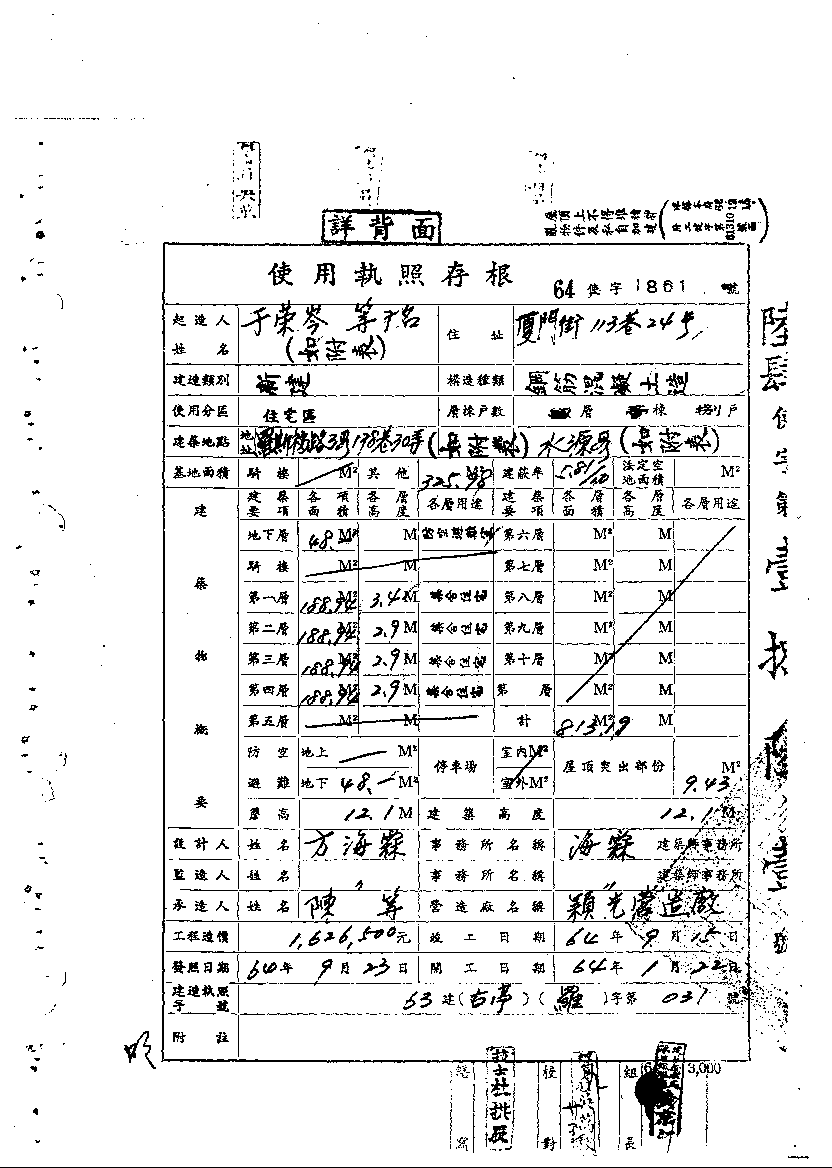 詳背面
屋頂上不得堆積雜
亂物件及私自加建
使用執照存根 64 使字 1861 號
起造人姓名 于荣岑 等 名 (如附表) 住址 厦門街113巷24号
建造類別 新建 構造種類 鋼筋混凝土造
使用分區 住宅區 層棟戶數 層 棟 戶
建築地點 地址 羅斯福路3段138巷30弄(如附表)水源段(如附表)
基地面積 騎樓 M² 其他 325.98 建蔽率 5.81/10 法定空地面積 M²
建築物概要 建築要項 各項面積 各層高度 各層用途 建築要項 各層面積 各層高度 各層用途
地下層 48.M² M 第六層 M² M
騎樓 M² M 第七層 M² M
第一層 188.94 M² 3.4M 集合住宅 第八層 M² M
第二層 188.94 M² 2.9M 集合住宅 第九層 M² M
第三層 188.94 M² 2.9M 集合住宅 第十層 M² M
第四層 188.94 M² 2.9M 集合住宅 第 層 M² M
第五層 M² M 計 813.19 M² M
防空避難 地上 M² 停車場 室內M² 屋頂突出部份 9.43 M²
地下 48.- M² 室外M²
簷高 12.1 M 建築高度 12.1 M
設計人 姓名 方海霖 事務所名稱 海霖 建築師事務所
監造人 姓名 〃 事務所名稱 〃 建築師事務所
承造人 姓名 陳 等 營造廠名稱 穎光營造廠
工程造價 1,626,500元 竣工日期 64年9月15日
發照日期 64年9月23日 開工日期 64年1月22日
建造執照字號 63建(古亭)(羅)字第031號
附註
繕寫 校對 組長
3,000
陸肆使字第壹捌陸壹號